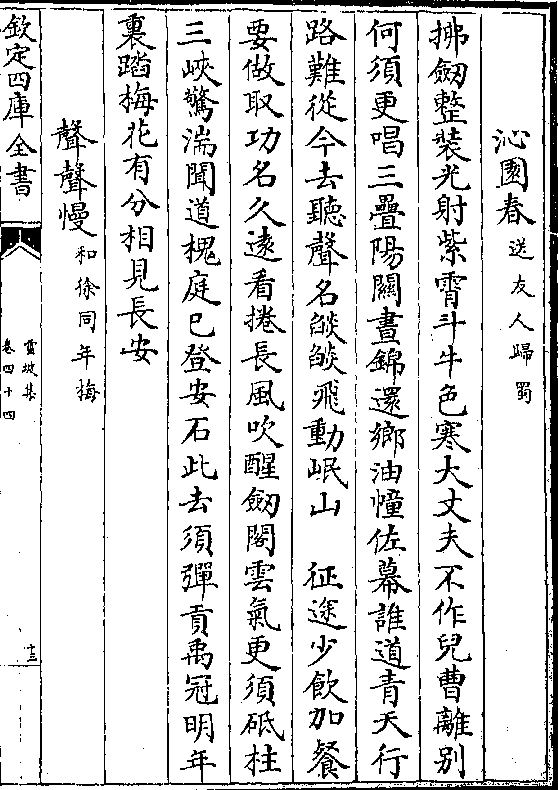 沁園春送友人歸蜀
拂劔整裝光射紫霄斗牛色寒大丈夫不作兒曹離别
何須更唱三疊陽關晝錦還鄉油幢佐幕誰道青天行
路難從今去聽聲名燄燄飛動岷山　征途少飲加餐
要做取功名久遠看捲長風吹醒劔閣雲氣更須砥柱
三峽驚湍聞道槐庭已登安石此去須彈貢禹冠明年
裏踏梅花有分相見長安
聲聲慢和徐同年梅
欽定四庫全書
雪坡集
卷四十四
十三